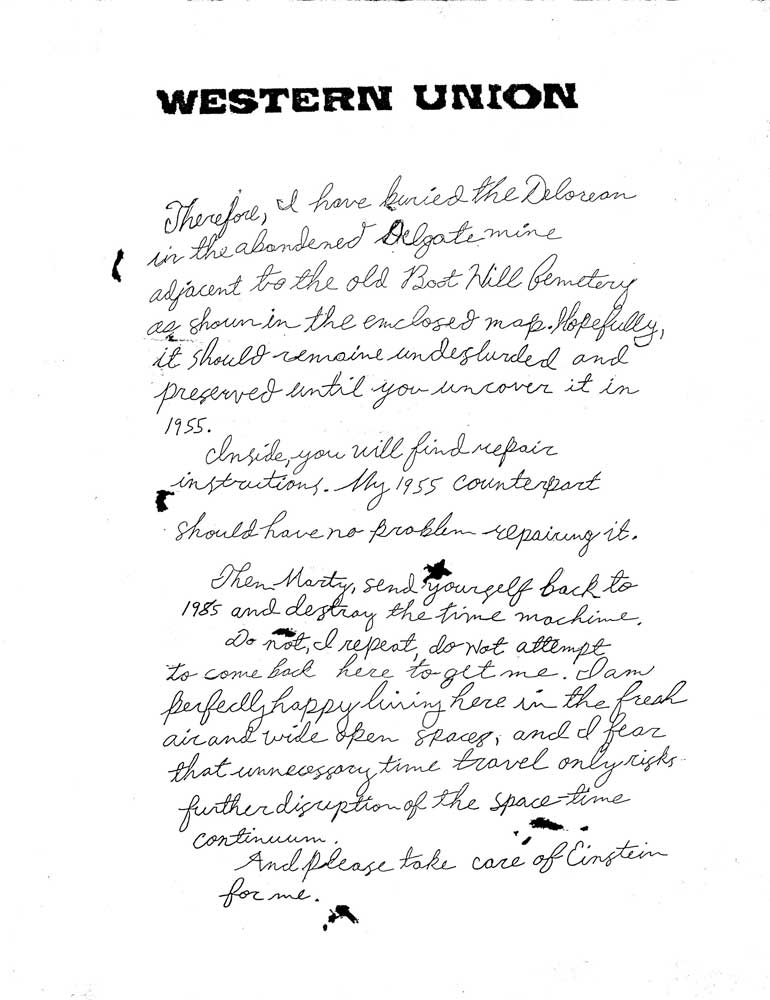 WESTERN UNION
Therefore, I have buried the Delorean
in the abandened Delgate mine
adjacent to the old Boot Hill Cemetery
as shown in the enclosed map. Hopefully,
it should remaine undesturded and
preserved until you uncover it in
1955.
Inside, you will find repair
instructions. My 1955 counterpart
should have no problem repairing it.
Then Marty, send yourself back to
1985 and destroy the time machine.
Do not, I repeat, do not attempt
to come back here to get me. I am
perfectly happy living here in the fresh
air and wide open spaces, and I fear
that unnecessary time travel only risks
further disruption of the space-time
continuum.
And please take care of Einstein
for me.